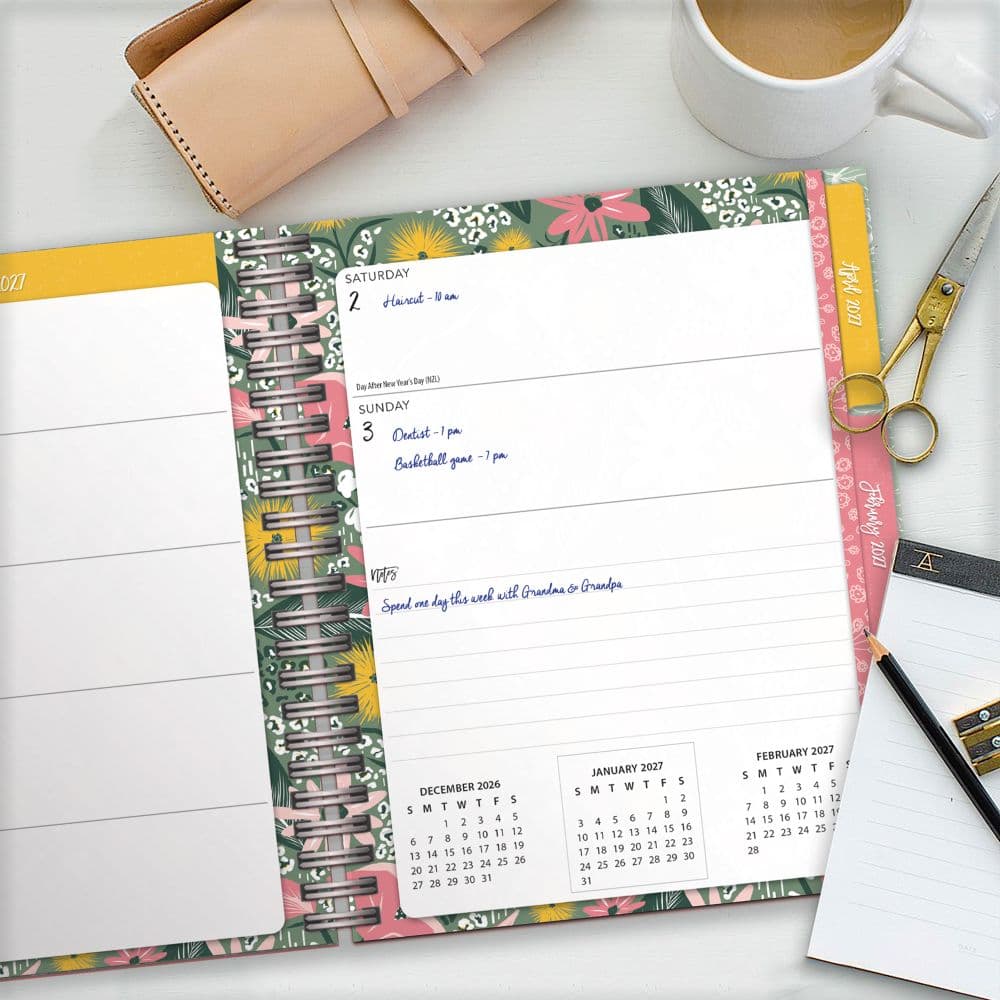 027
SATURDAY
2 Haircut - 10 am
Day After New Year's Day (NZL)
SUNDAY
3 Dentist - 1 pm
Basketball game - 7 pm
Notes
Spend one day this week with Grandma & Grandpa
DECEMBER 2026
S M T W T F S
1 2 3 4 5
6 7 8 9 10 11 12
13 14 15 16 17 18 19
20 21 22 23 24 25 26
27 28 29 30 31
JANUARY 2027
S M T W T F S
1 2
3 4 5 6 7 8 9
10 11 12 13 14 15 16
17 18 19 20 21 22 23
24 25 26 27 28 29 30
31
FEBRUARY 2027
S M T W T F S
1 2 3 4 5
7 8 9 10 11 12
14 15 16 17 18 19
21 22 23 24 25
28
April 2027
February 2027
A
DATE